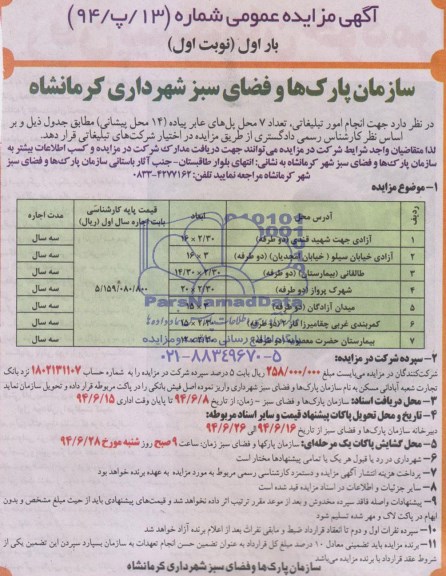 آگهی مزایده عمومی شماره (۱۳/پ/۹۴)
بار اول (نوبت اول)
سازمان پارک‌ها و فضای سبز شهرداری کرمانشاه
در نظر دارد جهت انجام امور تبلیغاتی، تعداد ۷ محل پل‌های عابر پیاده (۱۴ محل پیشانی) مطابق جدول ذیل و بر
اساس نظر کارشناس رسمی دادگستری از طریق مزایده در اختیار شرکت‌های تبلیغاتی قرار دهد.
لذا متقاضیان واجد شرایط شرکت در مزایده می‌توانند جهت دریافت مدارک شرکت در مزایده و کسب اطلاعات بیشتر به
سازمان پارک‌ها و فضای سبز شهر کرمانشاه به نشانی: انتهای بلوار طاقبستان- جنب آثار باستانی سازمان پارک‌ها و فضای سبز
شهر کرمانشاه مراجعه نمایید تلفن: ۴۲۷۷۱۶۲-۰۸۳۳
۱- موضوع مزایده:
ردیف آدرس محل ابعاد قیمت پایه کارشناسی بابت اجاره سال اول (ریال) مدت اجاره
۱ آزادی جهت شهید (دو طرفه) ۲/۳۰ × ۱۶ سه سال
۲ آزادی خیابان سیلو (خیابان) (دو طرفه) ۳ × ۱۶ سه سال
۳ طالقانی (بیمارستان) (دو طرفه) ۲/۳۰ × ۱۴/۳۰ سه سال
۴ شهرک پرواز (دو طرفه) ۲/۳۰ × ۲۰ ۵/۱۵۹/۰۸۰/۸۰۰ سه سال
۵ میدان آزادگان (دو طرفه) ۳ × ۱۵ سه سال
۶ کمربندی غربی (دو طرفه) ۲/۳۰ × ۱۵ سه سال
۷ بیمارستان حضرت معصومه سه سال
ParsNamadData
۰۲۱-۸۸۳۴۹۶۷۰-۵
۲- سپرده شرکت در مزایده:
شرکت‌کنندگان در مزایده می‌بایست مبلغ ۲۵۸/۰۰۰/۰۰۰ ریال بابت ۵ درصد سپرده شرکت در مزایده را به شماره حساب ۱۸۰۲۱۳۱۱۰۷ نزد بانک
تجارت شعبه آبادانی مسکن به نام سازمان پارک‌ها و فضای سبز شهرداری واریز نموده اصل فیش بانکی را در پاکت مربوطه قرار داده و تحویل نمایند
۳- محل دریافت اسناد: سازمان پارک‌ها و فضای سبز - زمان: از تاریخ ۹۴/۶/۸ تا پایان وقت اداری ۹۴/۶/۱۵
۴- تاریخ و محل تحویل پاکات پیشنهاد قیمت و سایر اسناد مربوطه:
دبیرخانه سازمان پارک‌ها و فضای سبز از تاریخ ۹۴/۶/۱۶ الی ۹۴/۶/۲۶
۵- محل گشایش پاکات یک مرحله‌ای: سازمان پارک‌ها و فضای سبز زمان: ساعت ۹ صبح روز شنبه مورخ ۹۴/۶/۲۸
۶- شهرداری در رد یا قبول هر یک یا تمامی پیشنهادها مختار است
۷- پرداخت هزینه انتشار آگهی مزایده و دستمزد کارشناسی رسمی مربوط به مورد مزایده به عهده برنده خواهد بود
۸- سایر جزئیات و اطلاعات در اسناد مزایده قید شده است
۹- پیشنهادات واصله فاقد سپرده مخدوش و بعد از موعد مقرر ترتیب اثر داده نخواهد شد و قیمت‌های پیشنهادی باید از حیث مبلغ مشخص و بدون
ابهام در پاکت لاک و مهر شده تسلیم شود
۱۰- سپرده نفرات اول و دوم تا انعقاد قرارداد ضبط و مابقی نفرات بعد از اعلام برنده آزاد خواهد شد
۱۱- برنده مزایده باید تضمینی معادل ۱۰ درصد مبلغ کل قرارداد به عنوان تضمین حسن انجام تعهدات به سازمان بسپارد سپردن این تضمین یکی از
شروط عقد قرارداد با برنده مزایده می‌باشد
سازمان پارک‌ها و فضای سبز شهرداری کرمانشاه